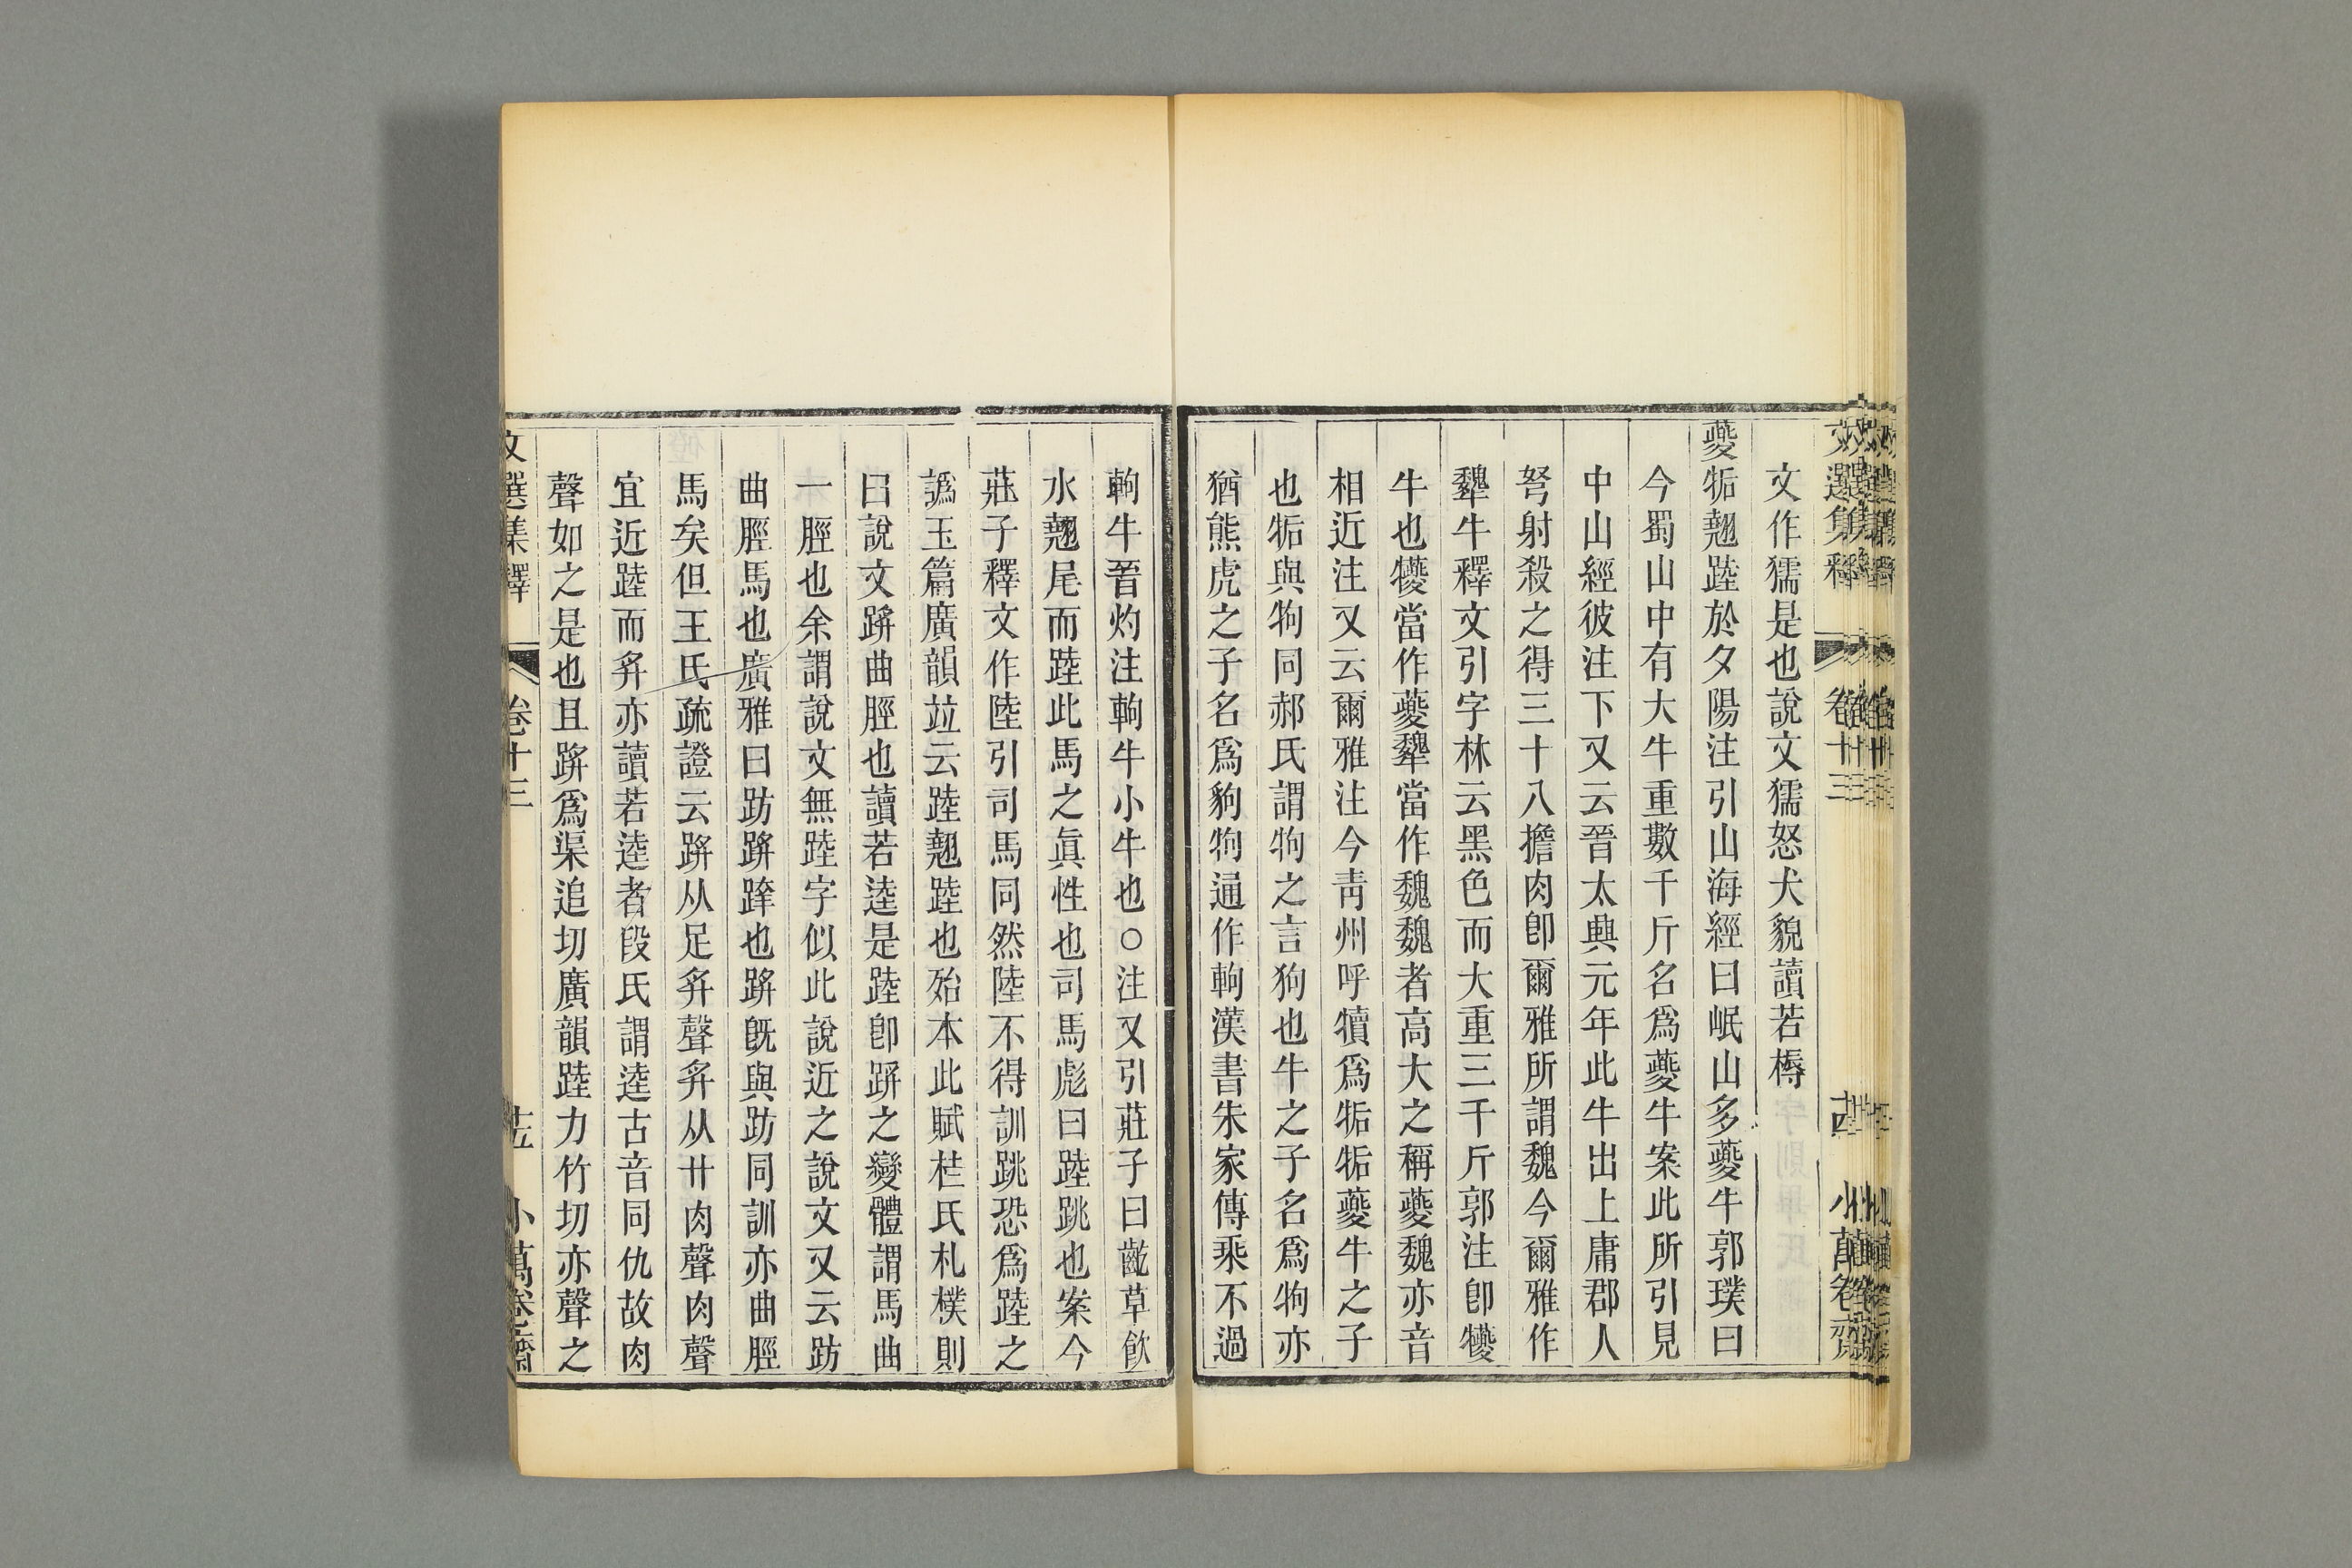 文選集釋 卷十三 十四 小萬卷齋
文作獳是也說文獳怒犬貌讀若槈
夔㸸翹踛於夕陽注引山海經曰岷山多夔牛郭璞曰
今蜀山中有大牛重數千斤名爲夔牛案此所引見
中山經彼注下又云晉太興元年此牛出上庸郡人
弩射殺之得三十八擔肉卽爾雅所謂魏今爾雅作
犩牛釋文引字林云黑色而大重三千斤郭注卽犪
牛也犪當作夔犩當作魏魏者高大之稱夔魏亦音
相近注又云爾雅注今靑州呼犢爲㸸㸸夔牛之子
也㸸與物同郝氏謂物之言狗也牛之子名爲物亦
猶熊虎之子名爲豿物通作軥漢書朱家傳乘不過
軥牛晉灼注軥牛小牛也○注又引莊子曰齕草飮
水翹尾而踛此馬之眞性也司馬彪曰踛跳也案今
莊子釋文作陸引司馬同然陸不得訓跳恐爲踛之
譌玉篇廣韻竝云踛翹踛也殆本此賦桂氏札樸則
曰說文𨇨曲脛也讀若逵是踛卽𨇨之變體謂馬曲
一脛也余謂說文無踛字似此說近之說文又云趽
曲脛馬也廣雅曰趽𨇨𨂜也𨇨旣與趽同訓亦曲脛
馬矣但王氏疏證云𨇨从足𢍏聲𢍏从廾肉聲肉聲
宜近踛而𢍏亦讀若逵者段氏謂逵古音同仇故肉
聲如之是也且𨇨爲渠追切廣韻踛力竹切亦聲之
文選集釋 卷十三 十五 小萬卷齋